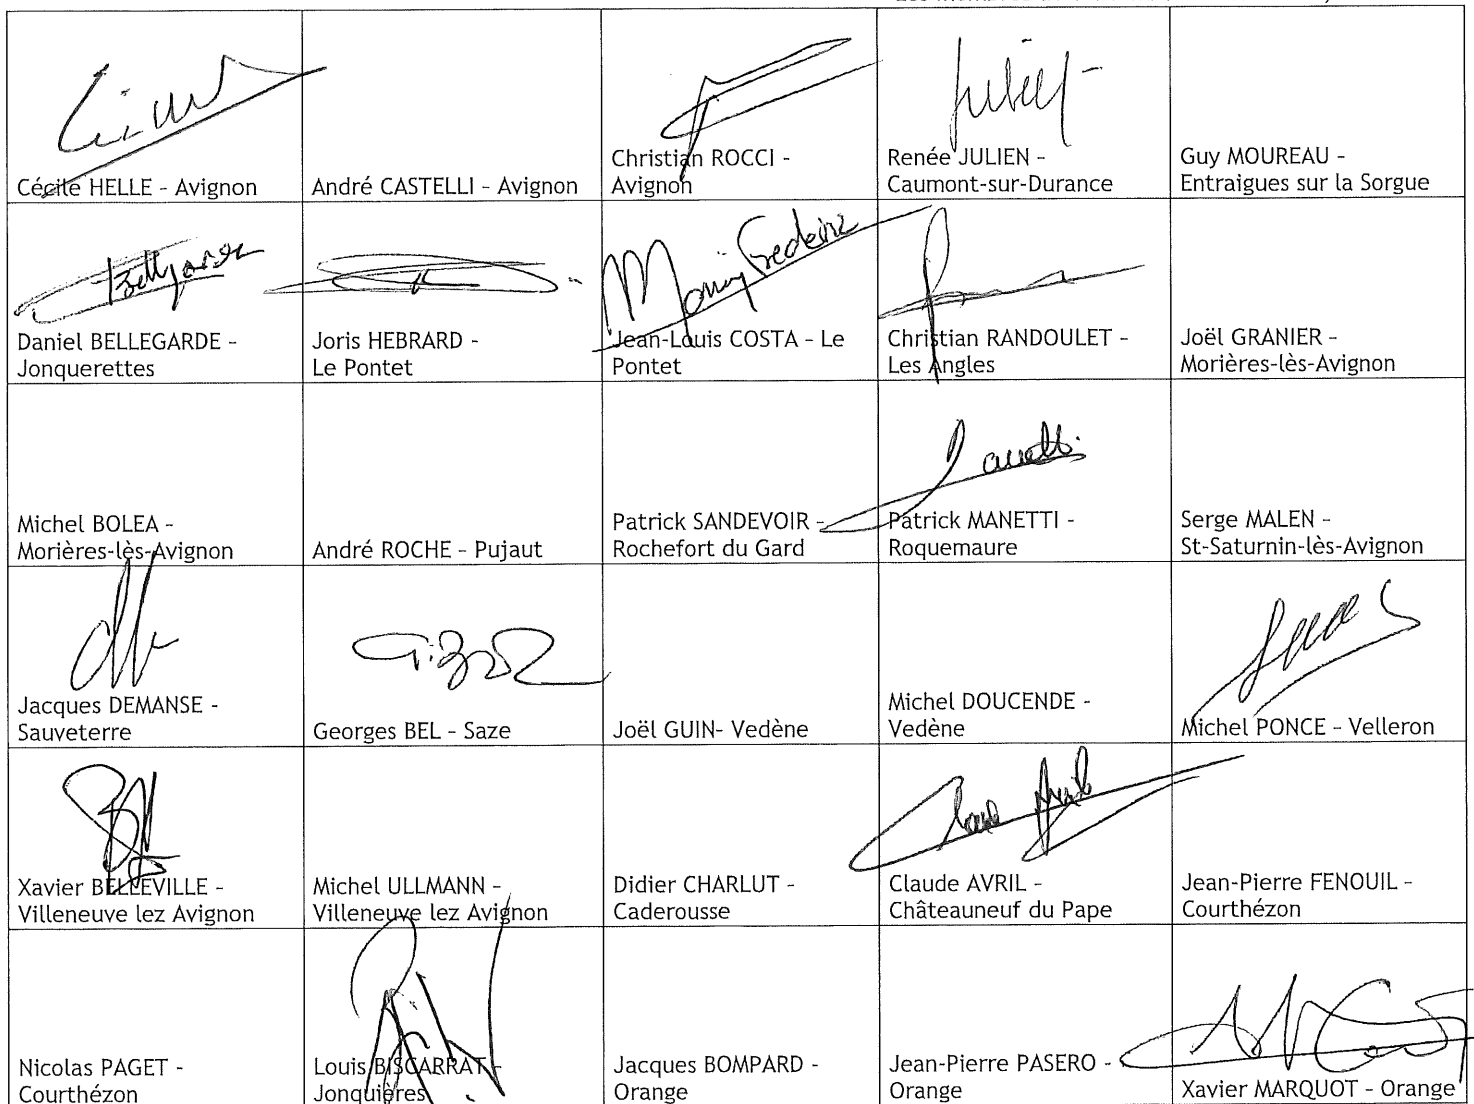 Cécile HELLE - Avignon
André CASTELLI - Avignon
Christian ROCCI -
Avignon
Renée JULIEN -
Caumont-sur-Durance
Guy MOUREAU -
Entraigues sur la Sorgue
Daniel BELLEGARDE -
Jonquerettes
Joris HEBRARD -
Le Pontet
Jean-Louis COSTA - Le
Pontet
Christian RANDOULET -
Les Angles
Joël GRANIER -
Morières-lès-Avignon
Michel BOLEA -
Morières-lès-Avignon
André ROCHE - Pujaut
Patrick SANDEVOIR -
Rochefort du Gard
Patrick MANETTI -
Roquemaure
Serge MALEN -
St-Saturnin-lès-Avignon
Jacques DEMANSE -
Sauveterre
Georges BEL - Saze
Joël GUIN- Vedène
Michel DOUCENDE -
Vedène
Michel PONCE - Velleron
Xavier BELLEVILLE -
Villeneuve lez Avignon
Michel ULLMANN -
Villeneuve lez Avignon
Didier CHARLUT -
Caderousse
Claude AVRIL -
Châteauneuf du Pape
Jean-Pierre FENOUIL -
Courthézon
Nicolas PAGET -
Courthézon
Louis BISCARRAT -
Jonquières
Jacques BOMPARD -
Orange
Jean-Pierre PASERO -
Orange
Xavier MARQUOT - Orange